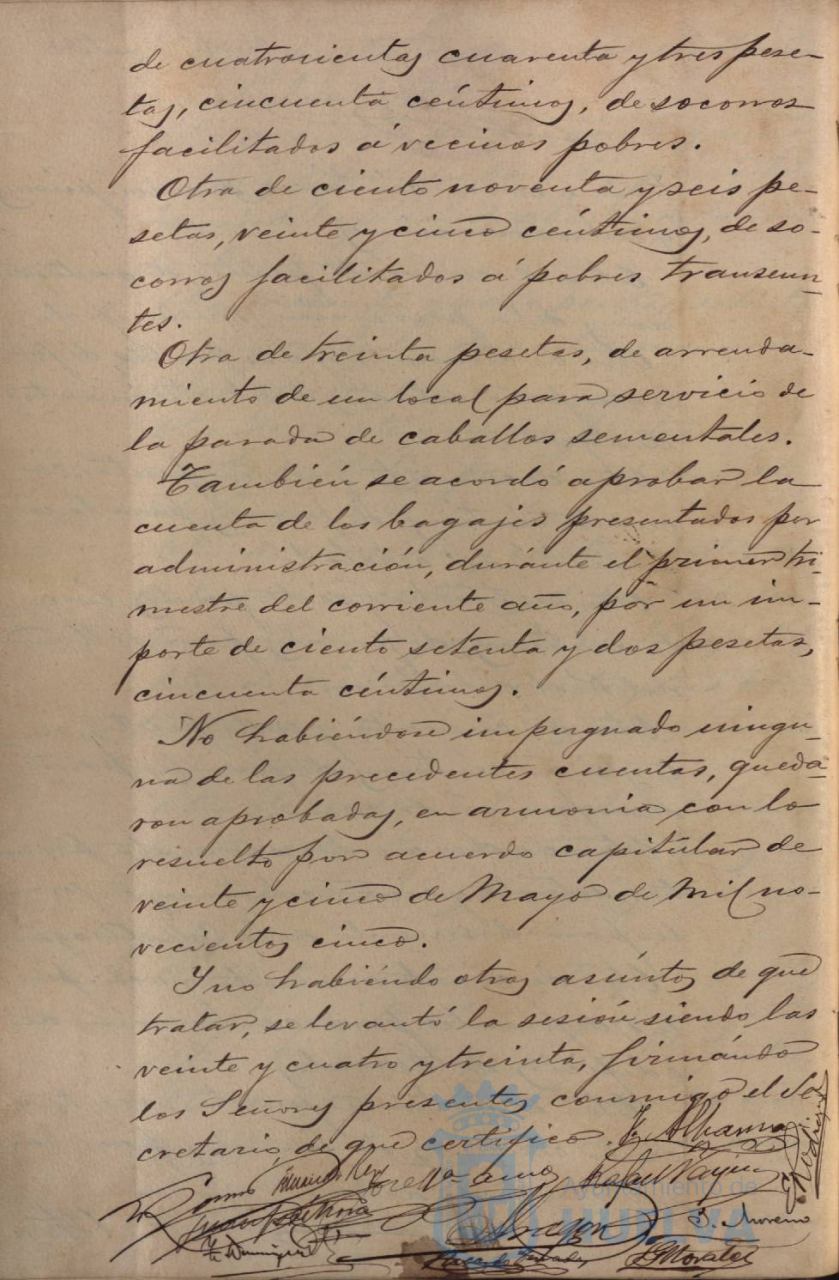 de cuatrocientas cuarenta y tres pese-
tas, cincuenta céntimos, de socorros
facilitados á vecinos pobres.
Otra de ciento noventa y seis pe-
setas, veinte y cinco céntimos, de so-
corros facilitados á pobres transeun-
tes.
Otra de treinta pesetas, de arrenda-
miento de un local para servicio de
la parada de caballos sementales.
También se acordó aprobar la
cuenta de los bagajes presentados por
administración, duránte el primer tri-
mestre del corriente año, por un im-
porte de ciento setenta y dos pesetas,
cincuenta céntimos.
No habiéndose impugnado ningu-
na de las precedentes cuentas, queda-
ron aprobadas, en armonia con lo
resuelto por acuerdo capitular de
veinte y cinco de Mayo de mil no-
vecientos cinco.
Y no habiéndo otros asúntos de que
tratar, se levantó la sesión siendo las
veinte y cuatro y treinta, firmándo
los Señores presentes conmigo el Se-
cretario, de que certifico.
J. Moreno
Ayuntamiento de
HUELVA
Morales